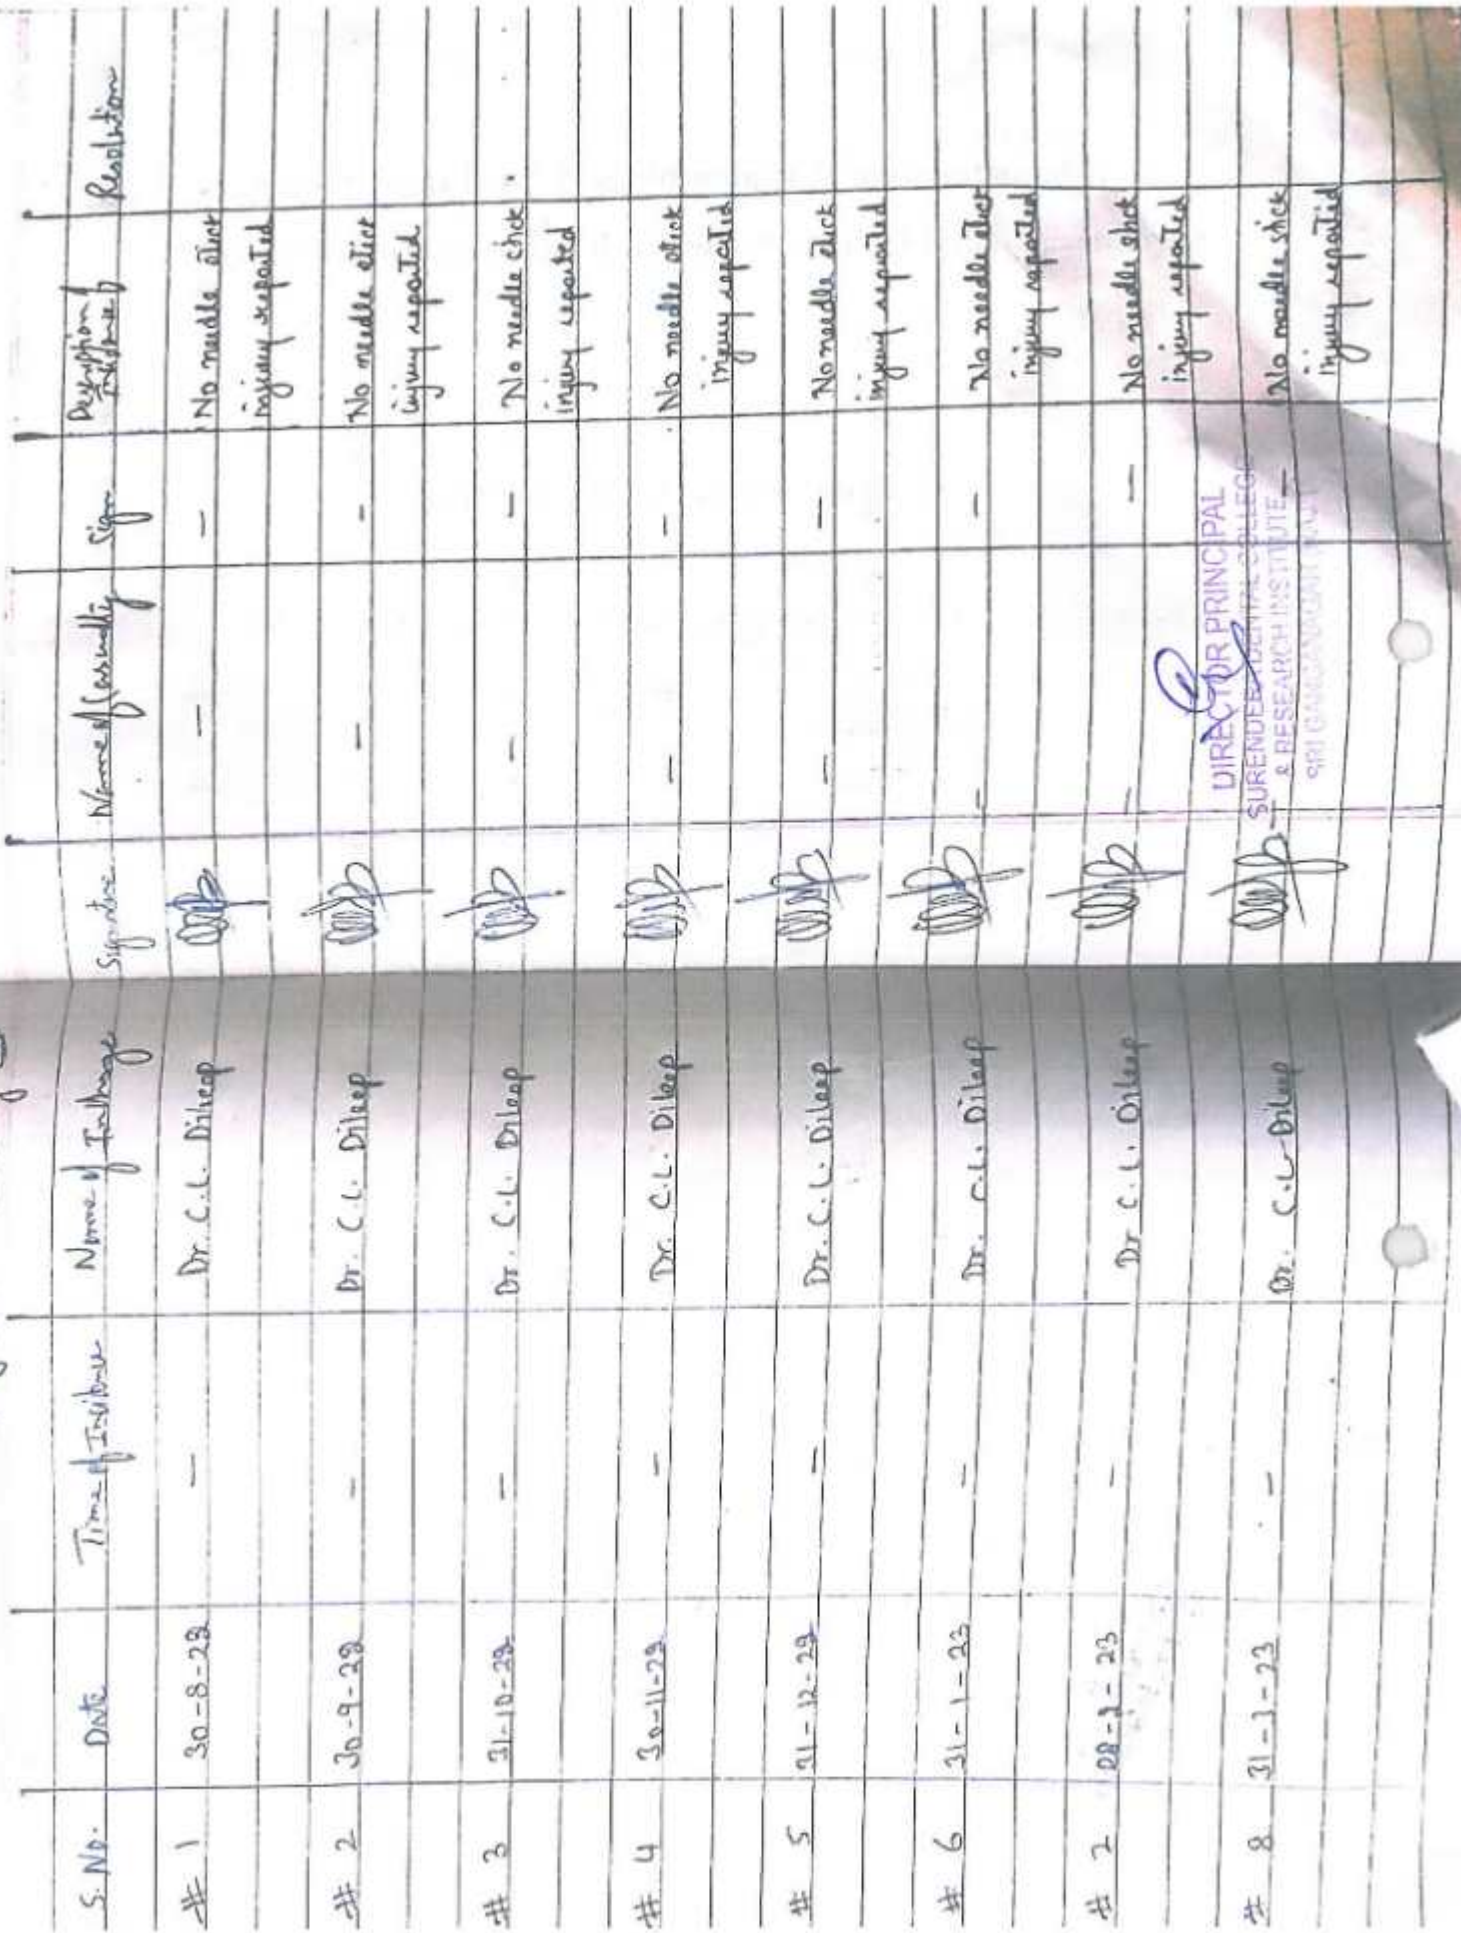 S. No. Date Time of Incidence Name of Incharge Signature Name of Casualty Sign Description of Resolution
Incidence
# 1 30-8-22 — Dr. C.L. Dileep — — No needle stick
injury reported
# 2 30-9-22 — Dr. C.L. Dileep — — No needle stick
injury reported
# 3 31-10-22 — Dr. C.L. Dileep — — No needle stick
injury reported
# 4 30-11-22 — Dr. C.L. Dileep — — No needle stick
injury reported
# 5 31-12-22 — Dr. C.L. Dileep — — No needle stick
injury reported
# 6 31-1-23 — Dr. C.L. Dileep — — No needle stick
injury reported
# 7 28-2-23 — Dr C.L. Dileep — — No needle stick
injury reported
# 8 31-3-23 — Dr. C.L Dileep — — No needle stick
injury reported
DIRECTOR PRINCIPAL
SURENDERA DENTAL COLLEGE
& RESEARCH INSTITUTE
SRI GANGANAGAR (RAJ.)